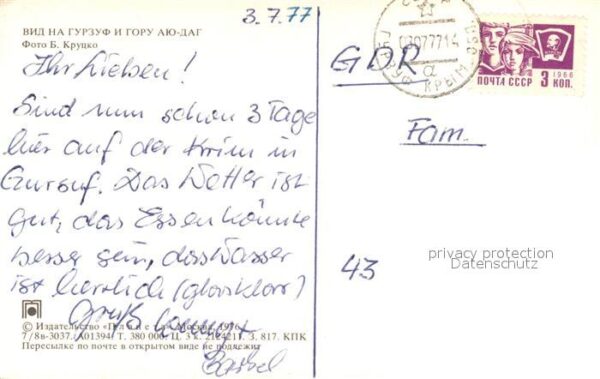 3.7.77
ВИД НА ГУРЗУФ И ГОРУ АЮ-ДАГ
Фото Б. Круцко
Ihr Lieben!
Sind nun schon 3 Tage
hier auf der Krim in
Gursuf. Das Wetter ist
gut, das Essen könnte
besser sein, das Wasser
ist herrlich (glasklar)
Gruß
Bärbel
© Издательство «Планета», Москва, 1976
7/8в-3037. (А01394) Т. 380 000. Ц. 3 к. 817. КПК
Пересылке по почте в открытом виде не подлежит
КРЫМ
03077714
ПОЧТА СССР 3 КОП.
1966
GDR
Fam.
43
privacy protection
Datenschutz